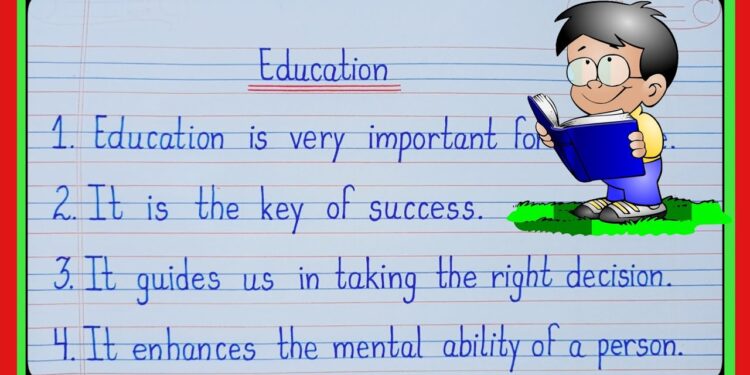 Education
1. Education is very important
2. It is the key of success.
3. It guides us in taking the right decision.
4. It enhances the mental ability of a person.